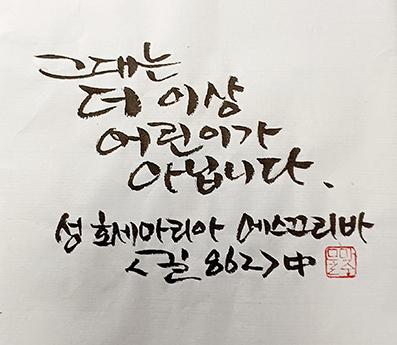 그대는
더 이상
어린이가
아닙니다.
성 호세마리아 에스끄리바
<길 862> 中